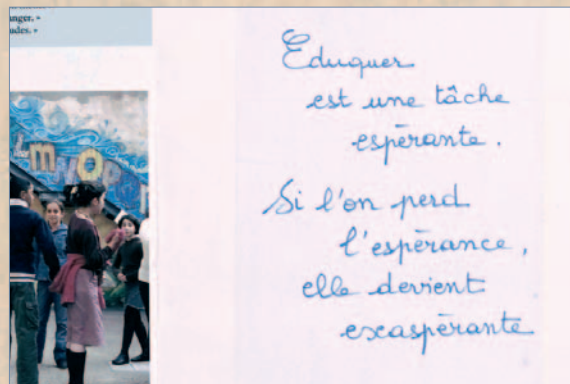 anger. »
udes. »
Eduquer
est une tâche
espérante.
Si l'on perd
l'espérance,
elle devient
exaspérante